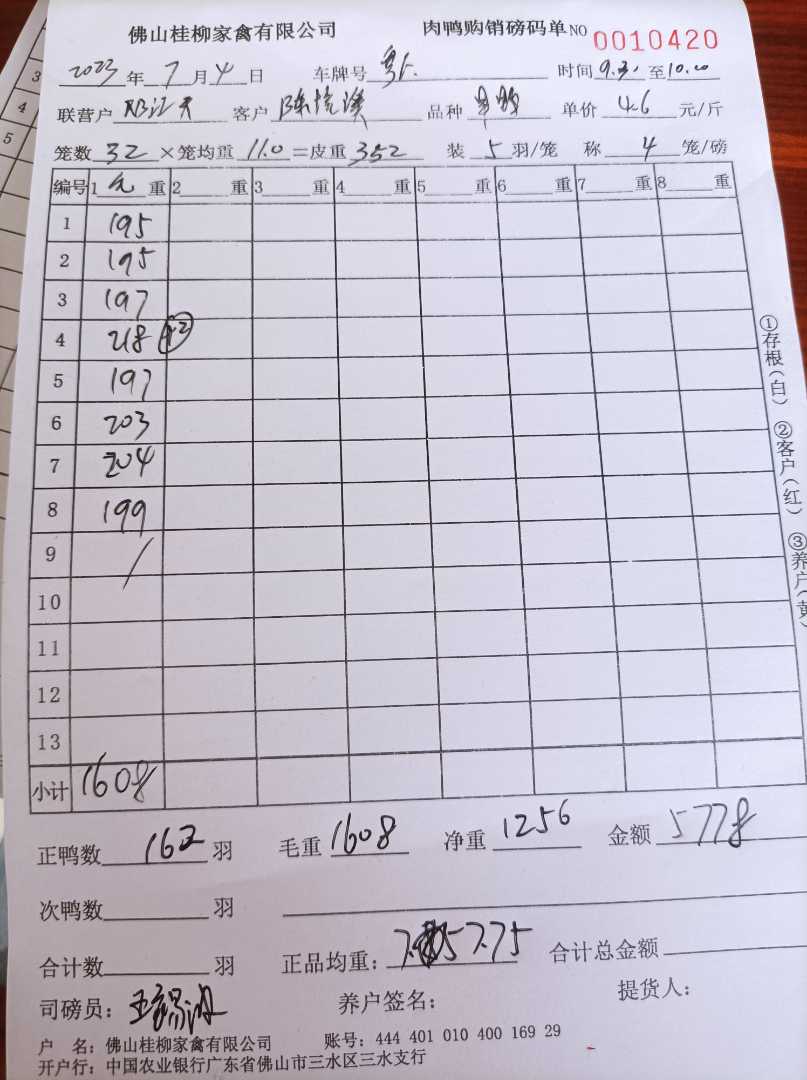 佛山桂柳家禽有限公司 肉鸭购销磅码单 NO 0010420
2023年7月4日 车牌号 时间 9.3 至 10.00
联营户 客户 陈 品种 单价 4.6 元/斤
笼数 32 ×笼均重 11.0 =皮重 352 装 5 羽/笼 称 4 笼/磅
编号 1 重 2 重 3 重 4 重 5 重 6 重 7 重 8 重
1 195
2 195
3 197
4 218 +2
5 197
6 203
7 204
8 199
9 /
10
11
12
13
小计 1608
正鸭数 162 羽 毛重 1608 净重 1256 金额 5778
次鸭数 羽
合计数 羽 正品均重: 7.75 合计总金额
司磅员: 养户签名: 提货人:
户 名: 佛山桂柳家禽有限公司 账号: 444 401 010 400 169 29
开户行: 中国农业银行广东省佛山市三水区三水支行
①存根(白) ②客户(红) ③养户(黄)
3
4
5